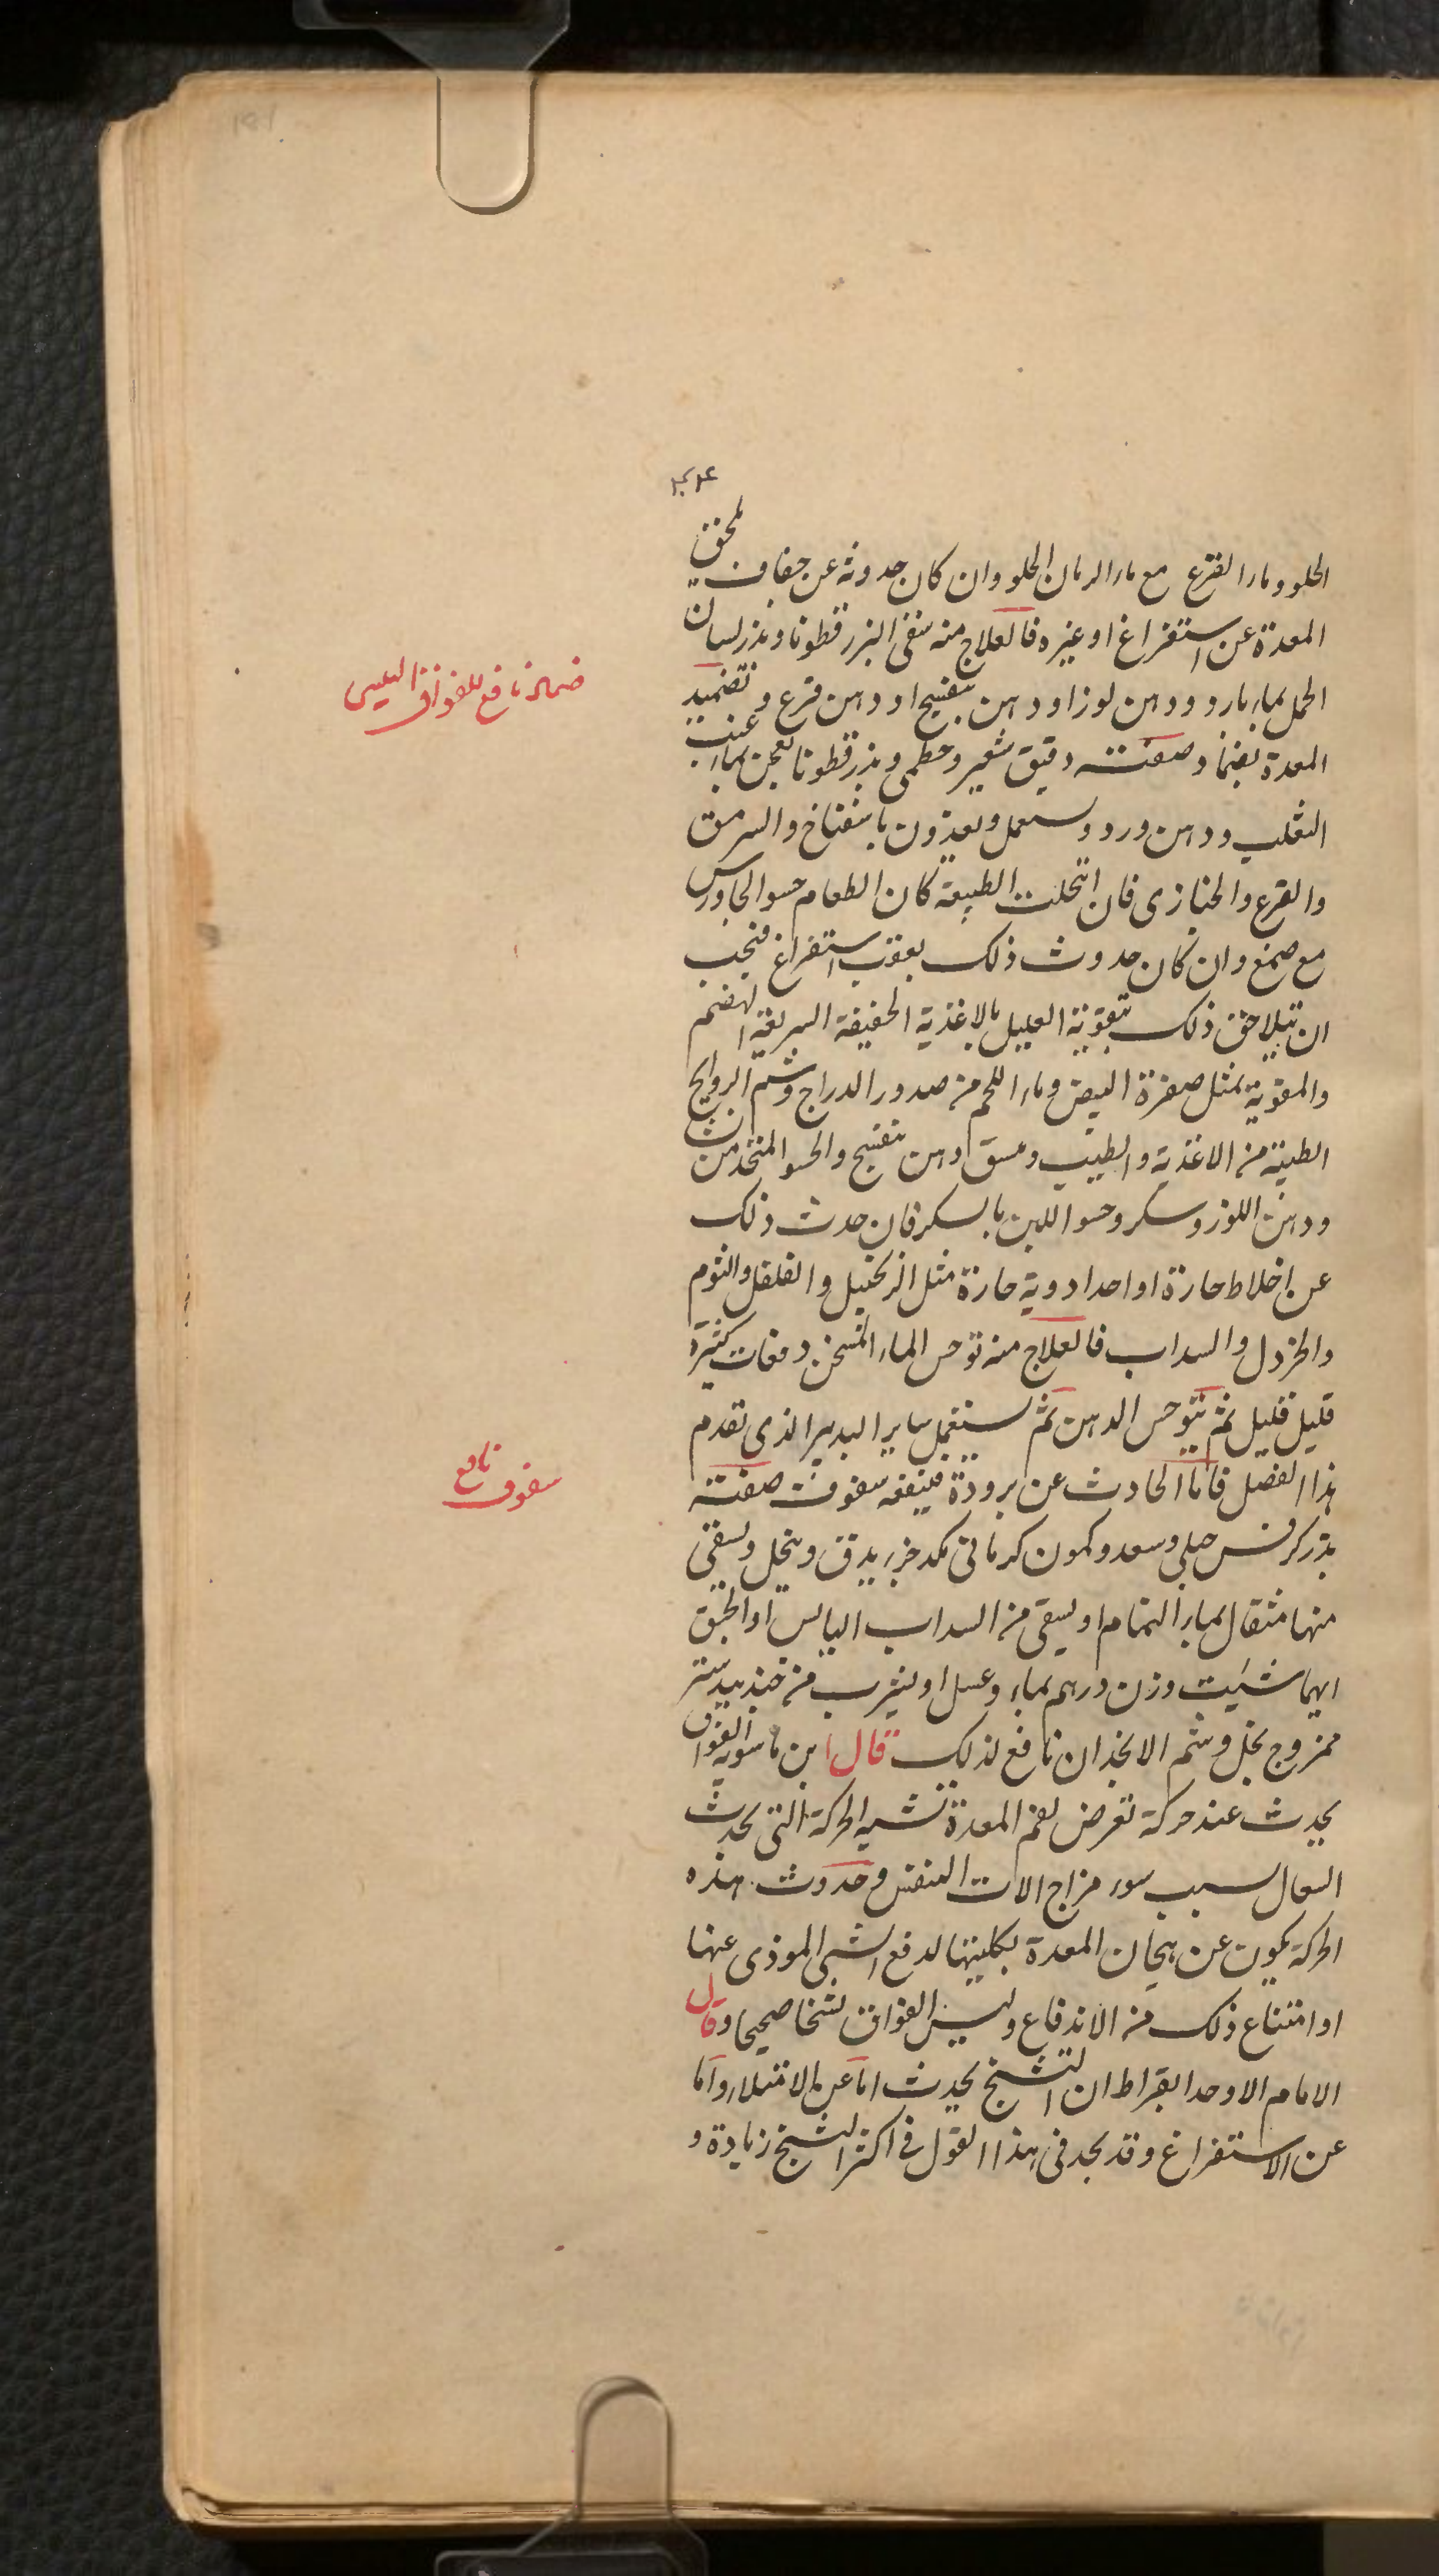 الحلو وماء القرع مع ماء الرمان الحلو وان كان حدوثه عن جفاف يلحق
المعدة عن استفراغ او غيره فالعلاج منه سقى البزر قطونا وبذر لسان
الحمل بماء بارد ودهن لوز او دهن بنفسج او دهن قرع وتضميد
المعدة بضماد صفته دقيق شعير وخطمى وبذر قطونا يعجن بماء عنب
الثعلب ودهن ورد ويستعمل ويغذون باسفناخ والسرمق
والقرع والخبازى فان انحلت الطبيعة كان الطعام حسو الجاورس
مع صمغ وان كان حدوث ذلك بعقب استفراغ فيجب
ان يتلاحق ذلك بتقوية العليل بالاغذية الخفيفة السريعة الهضم
والمقوية بمثل صفرة البيض وماء اللحم من صدور الدراج وشم الروايح
الطيبة من الاغذية والطيب ويسق دهن بنفسج والحسو المتخذ من
ودهن اللوز وسكر وحسو اللبن بالسكر فان حدث ذلك
عن اخلاط حارة او احد ادوية حارة مثل الزنجبيل والفلفل والثوم
والخردل والسداب فالعلاج منه توحس الماء المسخن دفعات كثيرة
قليل قليل ثم يتوحس الدهن ثم يستعمل ساير التدبير الذى تقدم
هذا الفصل فاما الحادث عن برودة فينفعه سفوف صفته
بذر كرفس جبلي وسعد وكمون كرمانى مكد جزء يدق وينخل ويسقى
منها مثقال بماء النمام او يسقى من السداب اليابس او الحبق
ايهما شئت وزن درهم بماء وعسل او يشرب من جندبيدستر
ممزوج بخل وشم الانجذان نافع لذلك قال ابن ماسويه الفواق
يحدث عند حركة تعرض لفم المعدة تشبه الحركة التى تحدث
السعال بسبب سوء مزاج الات التنفس وحدوث هذه
الحركة يكون عن هيجان المعدة بكليتها لدفع الشى الموذى عنها
او امتناع ذلك من الاندفاع وليس الفواق تشنجا صحيحا وقال
الامام الاوحد ابقراط ان التشنج يحدث اما عن الامتلاء واما
عن الاستفراغ وقد يجد فى هذا القول فى اكثر التشنج زيادة و
ضماد نافع للفواق اليبسى
سفوف نافع